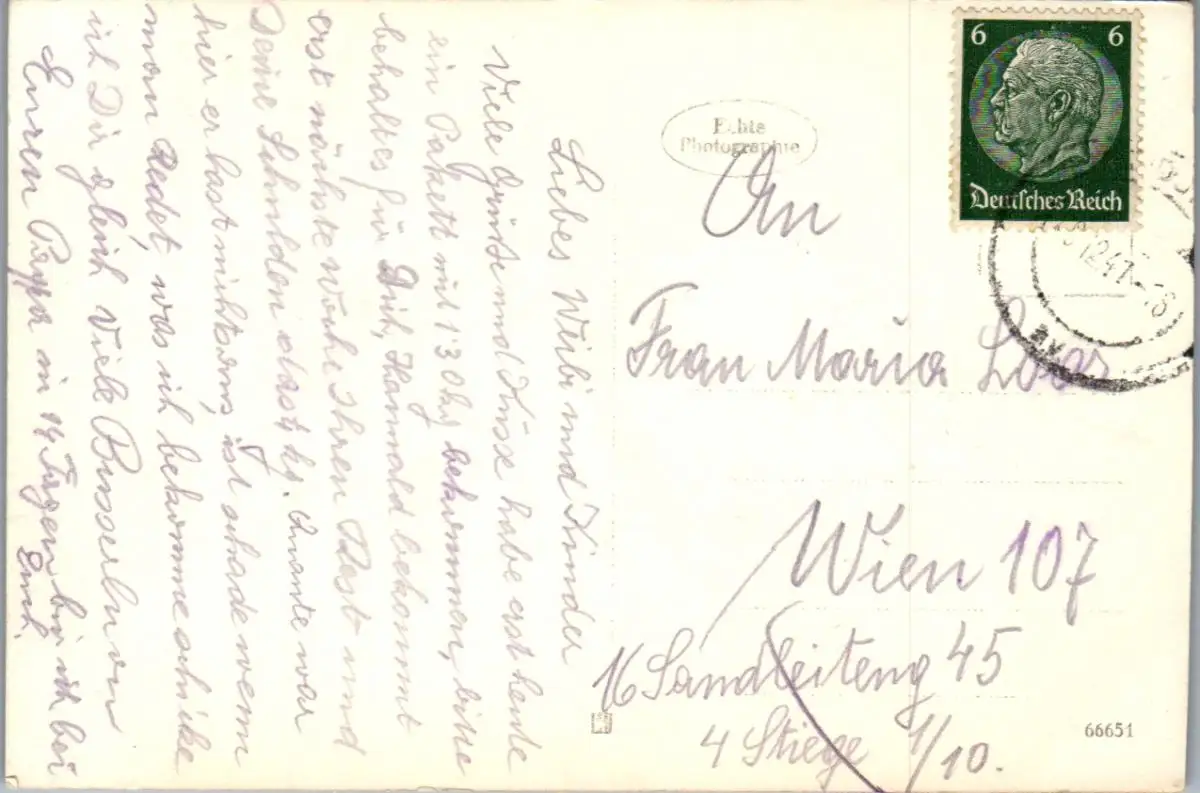 Liebes Weibi und Kinder
Viele Grüße und Küsse habe erst heute
ein Pakett mit 130 kg bekommen, bitte
behaltes für Dich, Hannold bekommt
erst nächste Woche Ihren Rest und
Deine Schulden das kg. war
hier er hast mich ist schade wenn
man Redet, was ich bekomme schike
ich Dir gleich Viele Busserln von
Euren Pappa in 14 Tagen bin ich bei
Euch.
Echte
Photographie
6 6
Deutsches Reich
12 41
An
Frau Maria
Wien 107
16 Sandleiteng 45
4 Stiege 1/10.
66651